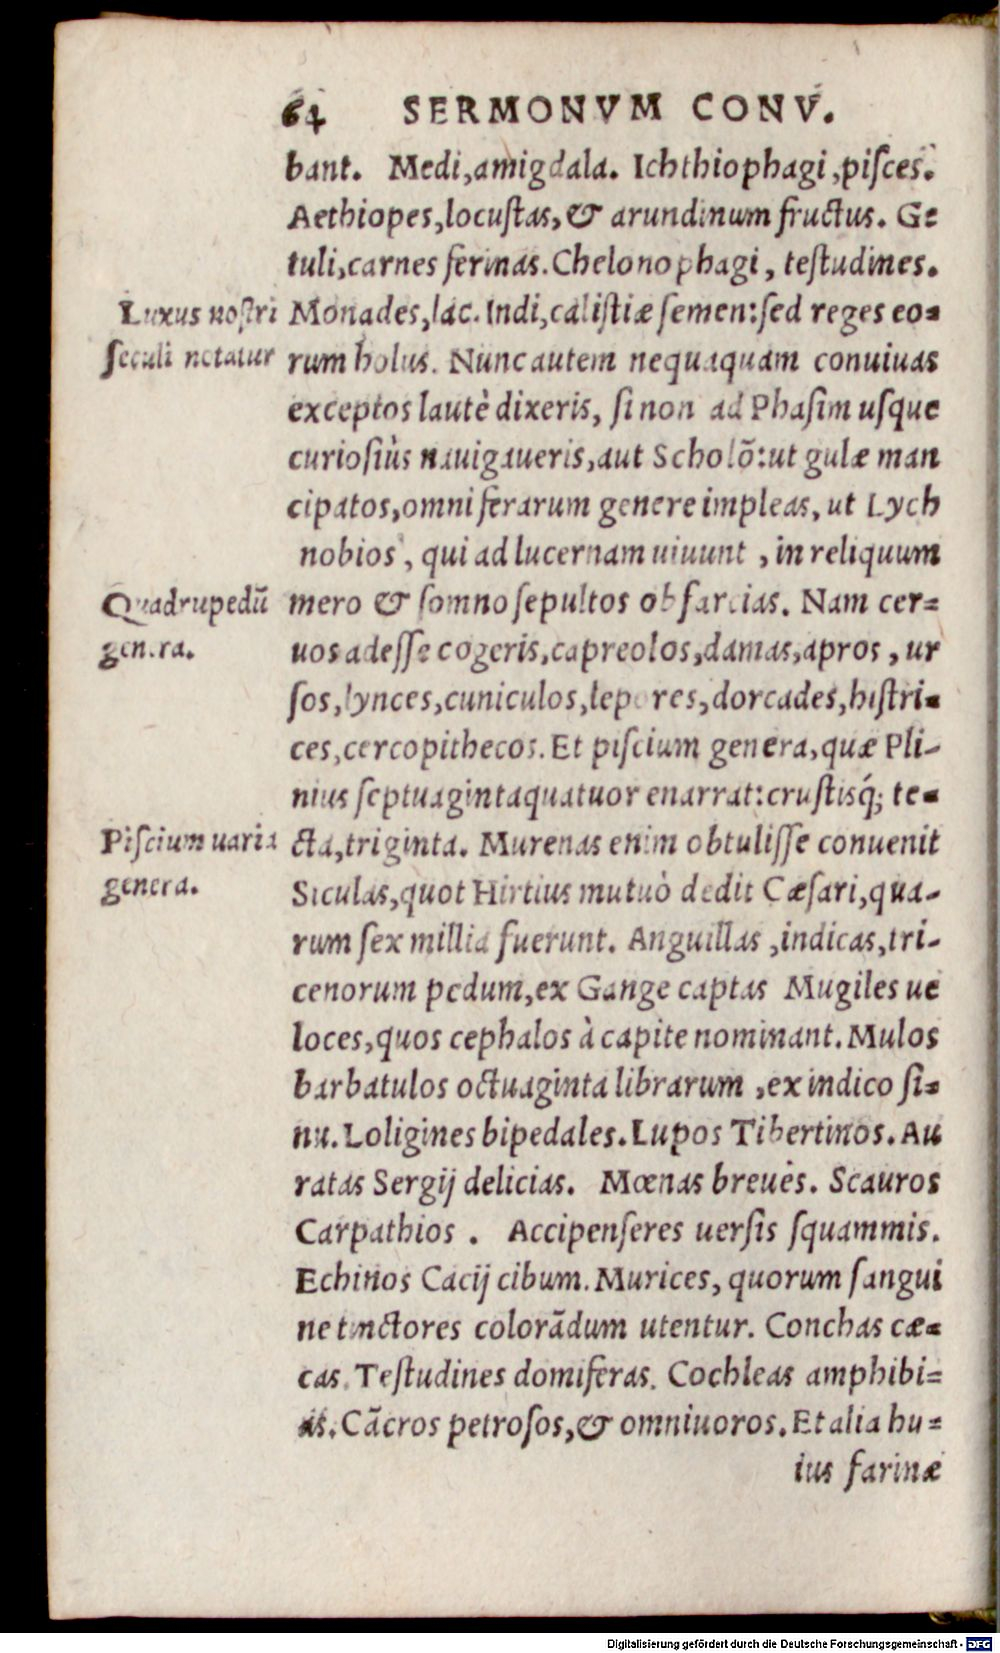 64 SERMONVM CONV.
bant. Medi, amigdala. Ichthiophagi, pisces.
Aethiopes, locustas, & arundinum fructus. Ge
tuli, carnes ferinas. Chelonophagi, testudines.
Luxus nostri
seculi notatur
Monades, lac. Indi, calistiæ semen: sed reges eo=
rum holus. Nunc autem nequaquam conuiuas
exceptos lautè dixeris, si non ad Phasim usque
curiosiùs nauigaueris, aut Scholõ: ut gulæ man
cipatos, omni ferarum genere impleas, ut Lych
nobios, qui ad lucernam uiuunt, in reliquum
Quadrupedũ
genera.
mero & somno sepultos obfarcias. Nam cer=
uos adesse cogeris, capreolos, damas, apros, ur
sos, lynces, cuniculos, lepores, dorcades, histri=
ces, cercopithecos. Et piscium genera, quæ Pli-
nius septuagintaquatuor enarrat: crustisq́; te=
Piscium uaria
genera.
cta, triginta. Murenas enim obtulisse conuenit
Siculas, quot Hirtius mutuò dedit Cæsari, qua-
rum sex millia fuerunt. Anguillas, indicas, tri-
cenorum pedum, ex Gange captas Mugiles ue
loces, quos cephalos à capite nominant. Mulos
barbatulos octuaginta librarum, ex indico si=
nu. Loligines bipedales. Lupos Tibertinos. Au
ratas Sergij delicias. Mœnas breuès. Scauros
Carpathios. Accipenseres uersis squammis.
Echinos Cacij cibum. Murices, quorum sangui
ne tinctores colorãdum utentur. Conchas cæ=
cas. Testudines domiferas. Cochleas amphibi=
as. Cãcros petrosos, & omniuoros. Et alia hu=
ius farinæ
Digitalisierung gefördert durch die Deutsche Forschungsgemeinschaft - DFG